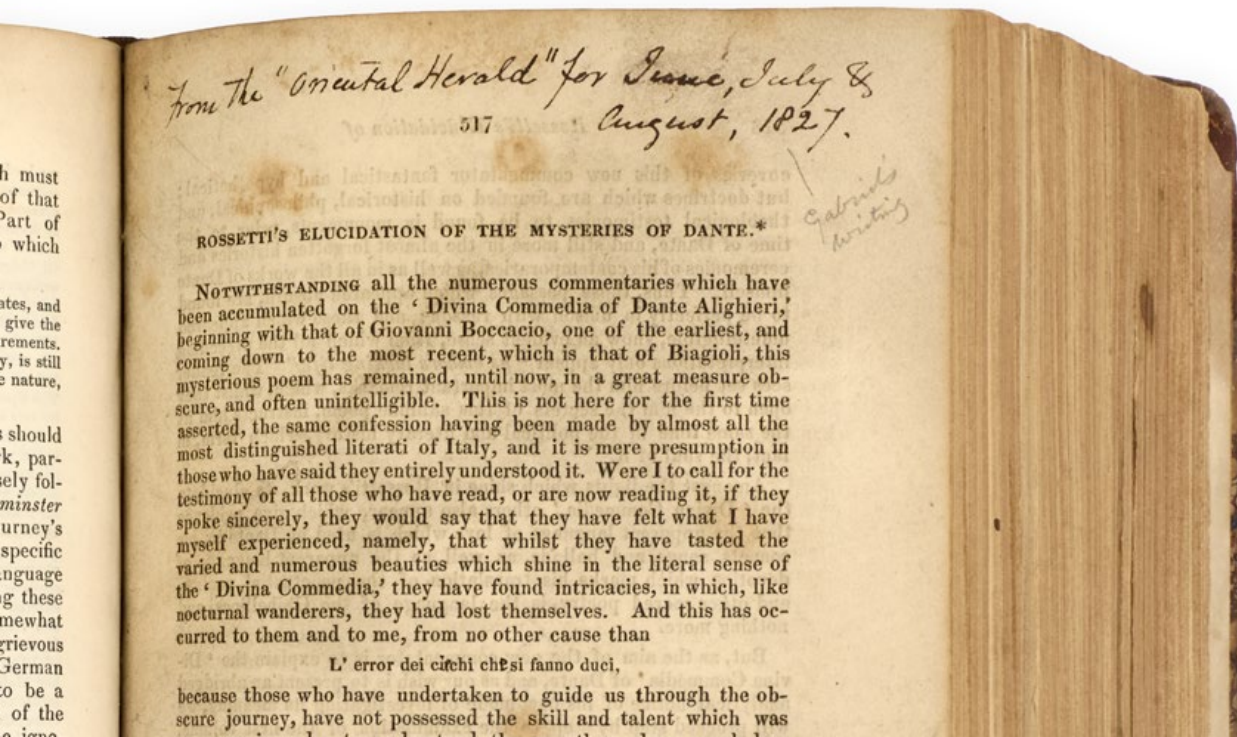 h must
of that
Part of
which
ates, and
give the
rements.
y, is still
e nature,
s should
k, par-
sely fol-
minster
urney's
specific
anguage
ng these
mewhat
grievous
German
to be a
of the
From the "Oriental Herald" for June, July &
August, 1827.
517
Gabriel's
writing
ROSSETTI'S ELUCIDATION OF THE MYSTERIES OF DANTE.*
NOTWITHSTANDING all the numerous commentaries which have
been accumulated on the ‘ Divina Commedia of Dante Alighieri,’
beginning with that of Giovanni Boccacio, one of the earliest, and
coming down to the most recent, which is that of Biagioli, this
mysterious poem has remained, until now, in a great measure ob-
scure, and often unintelligible. This is not here for the first time
asserted, the same confession having been made by almost all the
most distinguished literati of Italy, and it is mere presumption in
those who have said they entirely understood it. Were I to call for the
testimony of all those who have read, or are now reading it, if they
spoke sincerely, they would say that they have felt what I have
myself experienced, namely, that whilst they have tasted the
varied and numerous beauties which shine in the literal sense of
the ‘ Divina Commedia,’ they have found intricacies, in which, like
nocturnal wanderers, they had lost themselves. And this has oc-
curred to them and to me, from no other cause than
L' error dei ciechi che si fanno duci,
because those who have undertaken to guide us through the ob-
scure journey, have not possessed the skill and talent which was